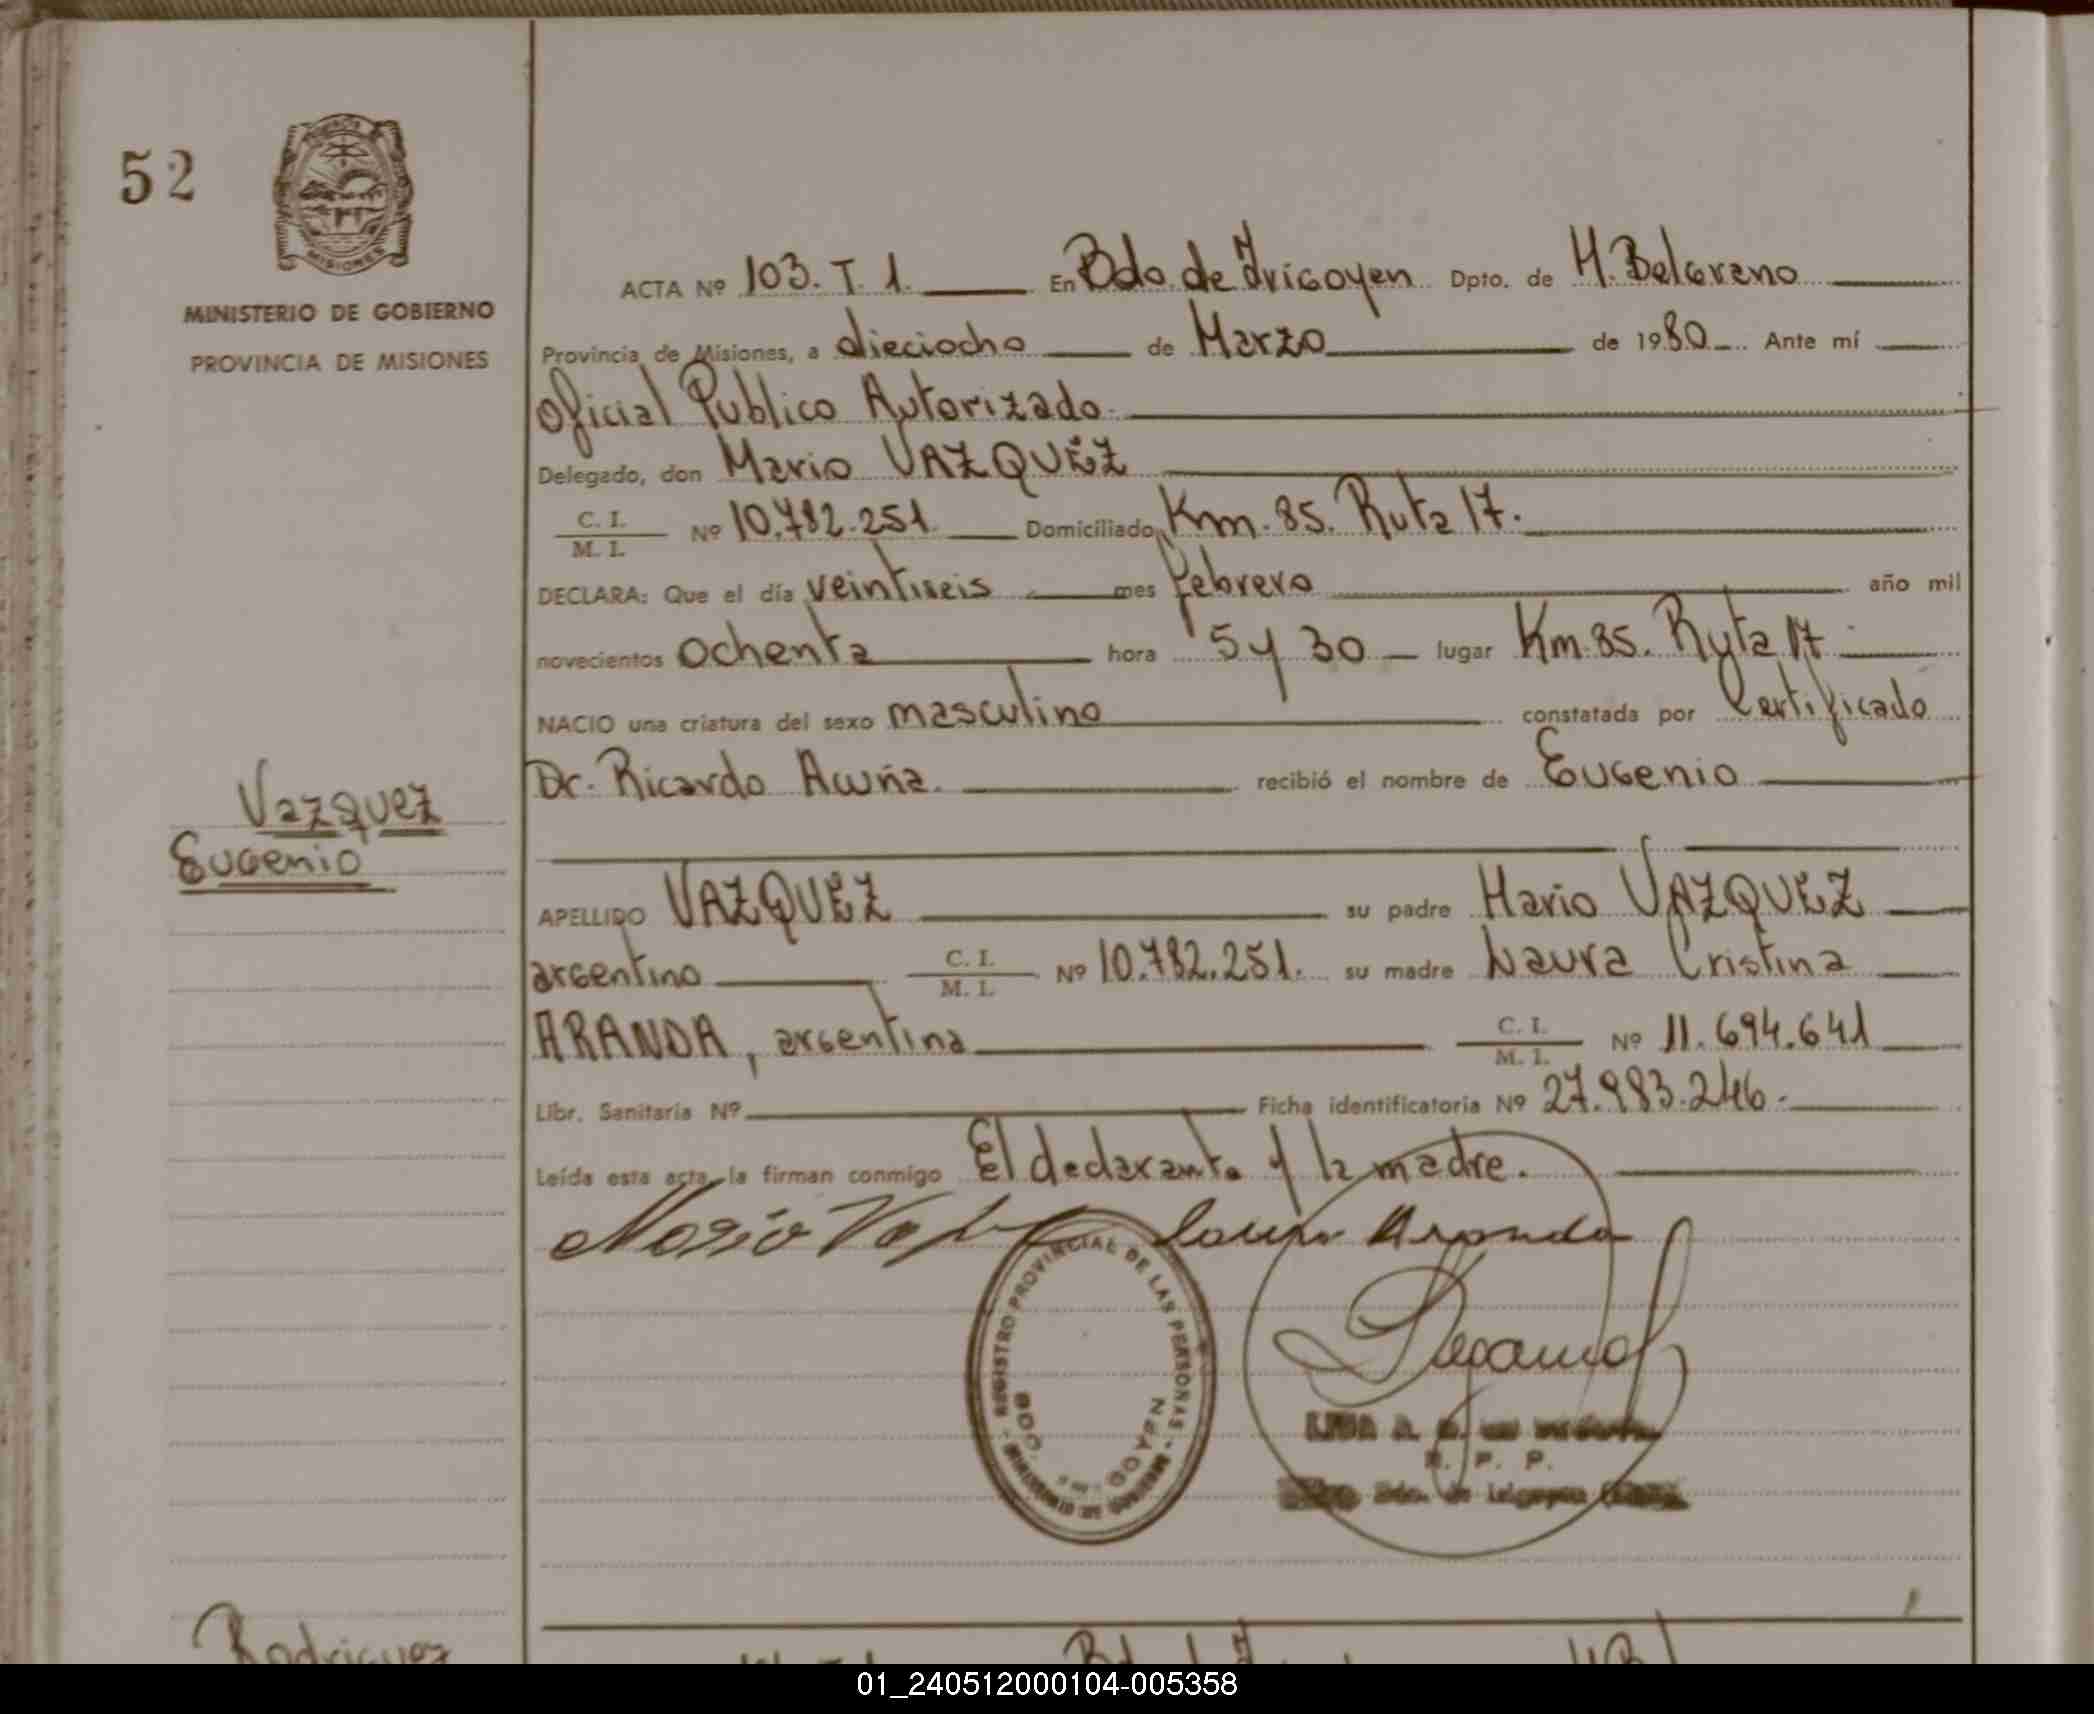 52
MISIONES
MINISTERIO DE GOBIERNO
PROVINCIA DE MISIONES
Vazquez
Eugenio
ACTA Nº 103. T. 1. En Bdo. de Irigoyen Dpto. de M. Belgrano
Provincia de Misiones, a dieciocho de Marzo de 1980 Ante mí
Oficial Publico Autorizado.
Delegado, don Mario VAZQUEZ
C. I. / M. I. Nº 10.782.251. Domiciliado Km. 85. Ruta 17.
DECLARA: Que el día veintiseis mes febrero año mil
novecientos ochenta hora 5 y 30 lugar Km. 85. Ruta 17
NACIO una criatura del sexo masculino constatada por Certificado
Dr. Ricardo Acuña. recibió el nombre de Eugenio
APELLIDO VAZQUEZ su padre Mario VAZQUEZ
argentino C. I. / M. I. Nº 10.782.251. su madre Laura Cristina
ARANDA, argentina C. I. / M. I. Nº 11.694.641
Libr. Sanitaria Nº Ficha identificatoria Nº 27.983.246.
Leída esta acta, la firman conmigo El declarante y la madre.
Mario Laura Aranda
REGISTRO PROVINCIAL DE LAS PERSONAS
R. P. P.
Bdo. de Irigoyen
Rodriguez
01_240512000104-005358